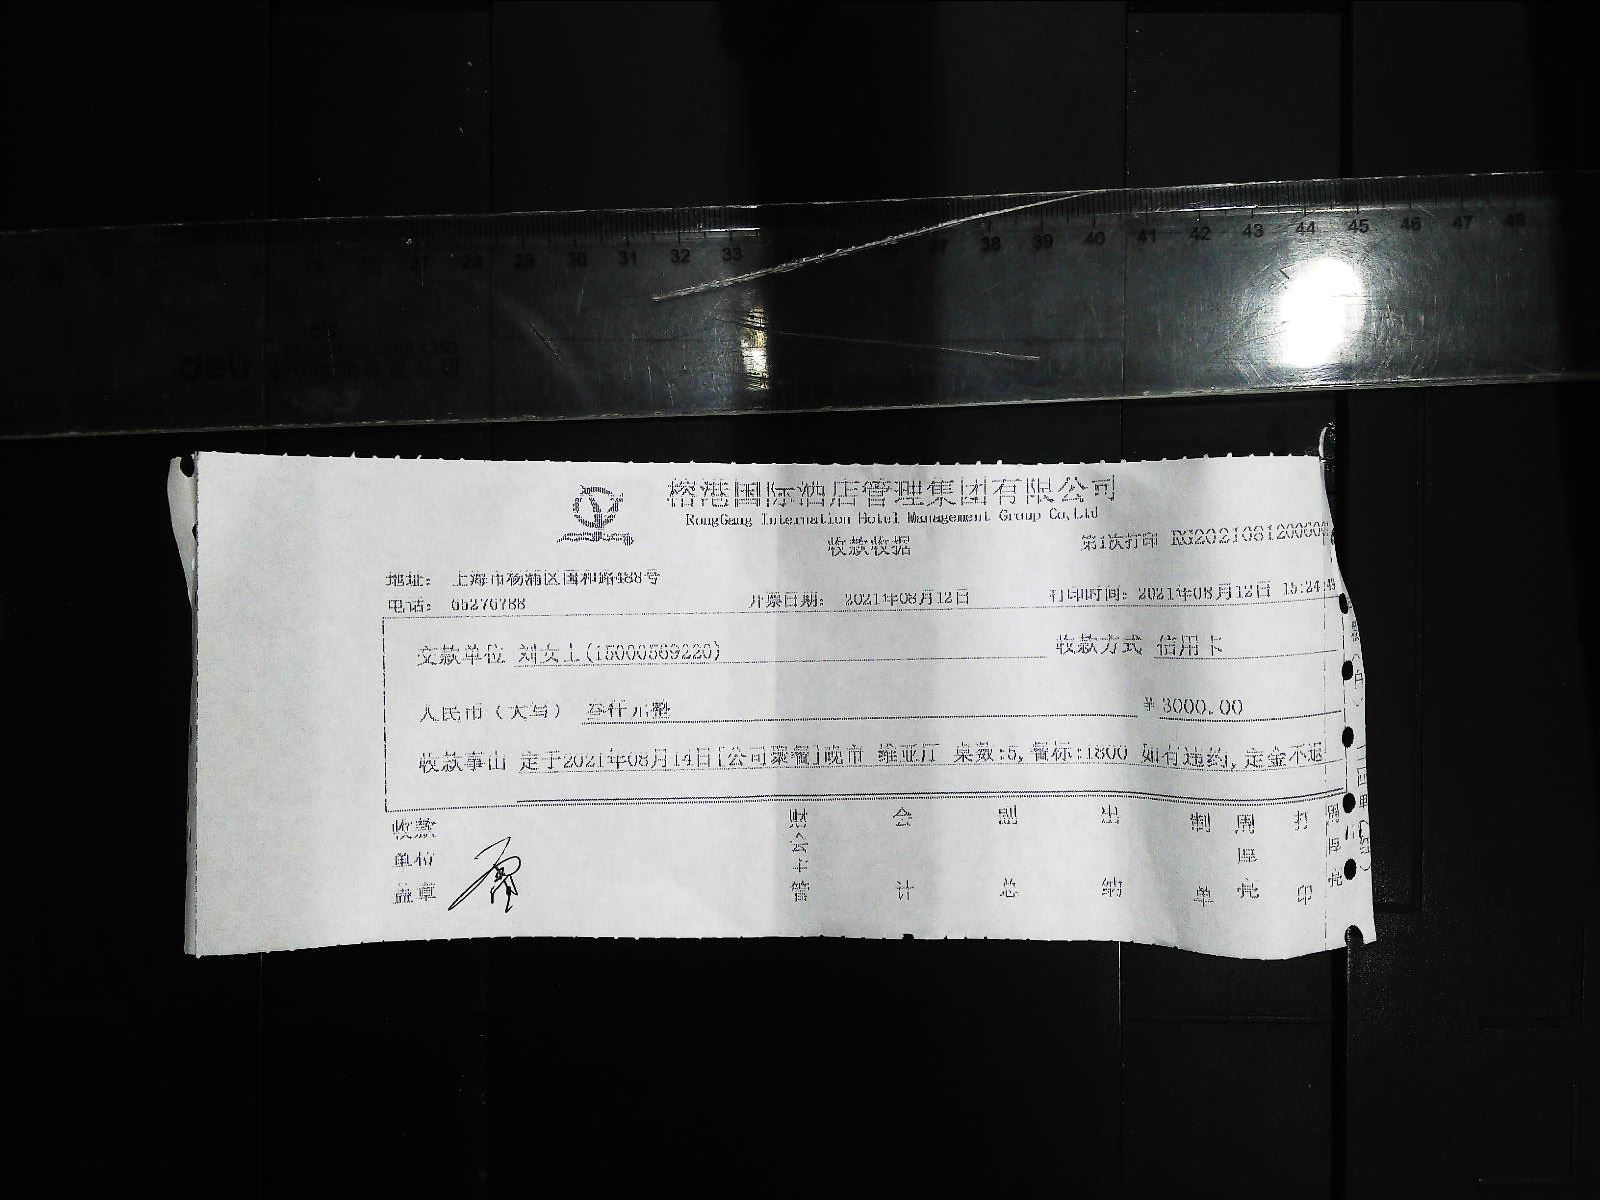 29 30 31 32 33 37 38 39 40 41 42 43 44 45 46 47 48
deli
榕港国际酒店管理集团有限公司
RongGang Internation Hotel Management Group Co,Ltd
收款收据
第1次打印 RG2021081200600
地址： 上海市杨浦区国和路488号
电话： 65276788 开票日期： 2021年08月12日 打印时间：2021年08月12日 15:24:
交款单位 刘女士(15000569220) 收款方式 信用卡
人民币（大写） 叁仟元整 ¥3000.00
收款事由 定于2021年08月14日[公司聚餐]晚市 维亚厅 桌数:5,餐标:1800 如有违约,定金不退
收款单位盖章
财会主管 会计 副总 出纳 制单 周厚亮 打印 周厚亮